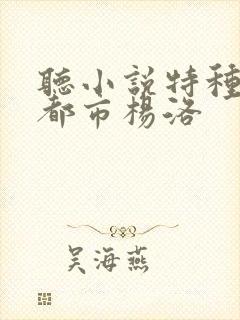 聽小說特種
都市楊洛
吴海燕